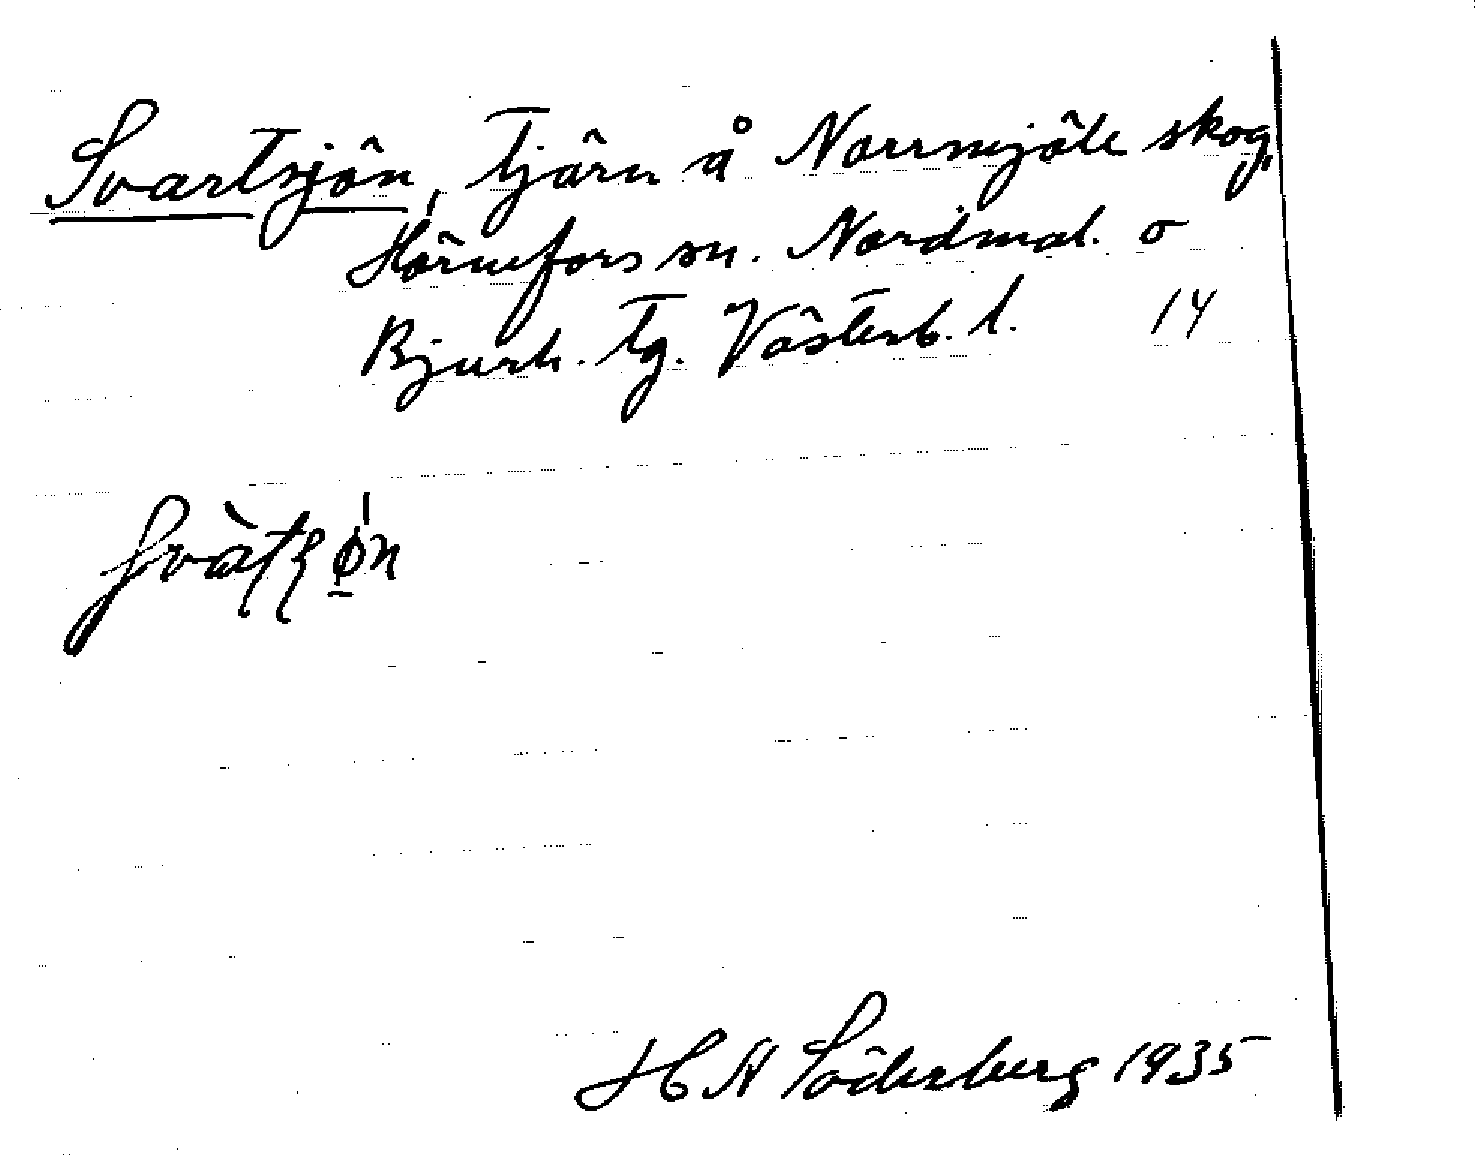 Svartsjön, tjärn å Norrmjöle skog,
Hörnefors sn. Nordmal. o
Bjurh. tg. Västerb. l. 14
H A Söderberg 1935